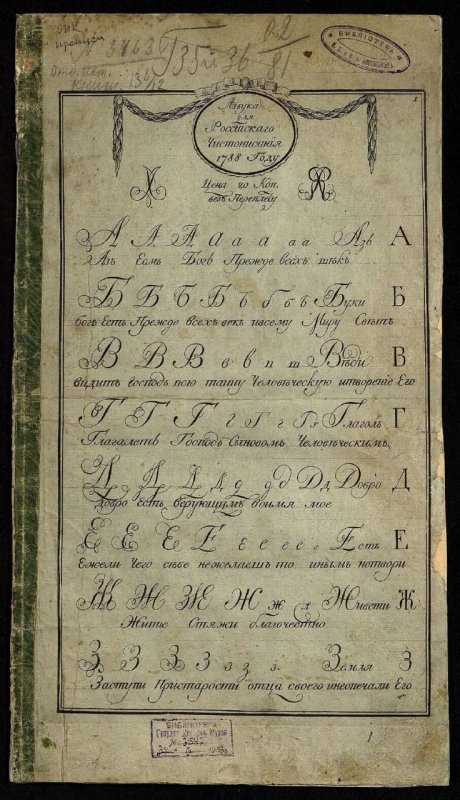 Азбука
для
Россiйскаго
Чистописания
1788 Году
Цена 20 Коп
безъ Переплёту
БИБЛИОТЕКА
А А А а а а а Азъ А
Азъ Есмь Богъ Прежде всехъ векъ
Б Б Б Б Буки Б
Богъ Есть Прежде всехъ векъ ивсему Миру Светъ
В В В в в п т Вѣди В
видитъ Господь всю тайну Человѣческую итворение Его
Г Г Г г г г г Глаголь Г
Глаголетъ Господь Сыновомъ Человѣческимъ
Д Д Д д д д д Д д Добро Д
Добро Есть верующимъ воимя мое
Е Е Е Е е е е е Есть Е
Ежели Чего себе нежелаешь то инымъ нетвори
Ж Ж Ж Ж ж Живети Ж
Житие Стяжи благочестно
З З З З з з з Земля З
Заступи Пристарости отца своего инеопечали Его
БИБЛИОТЕКА
1